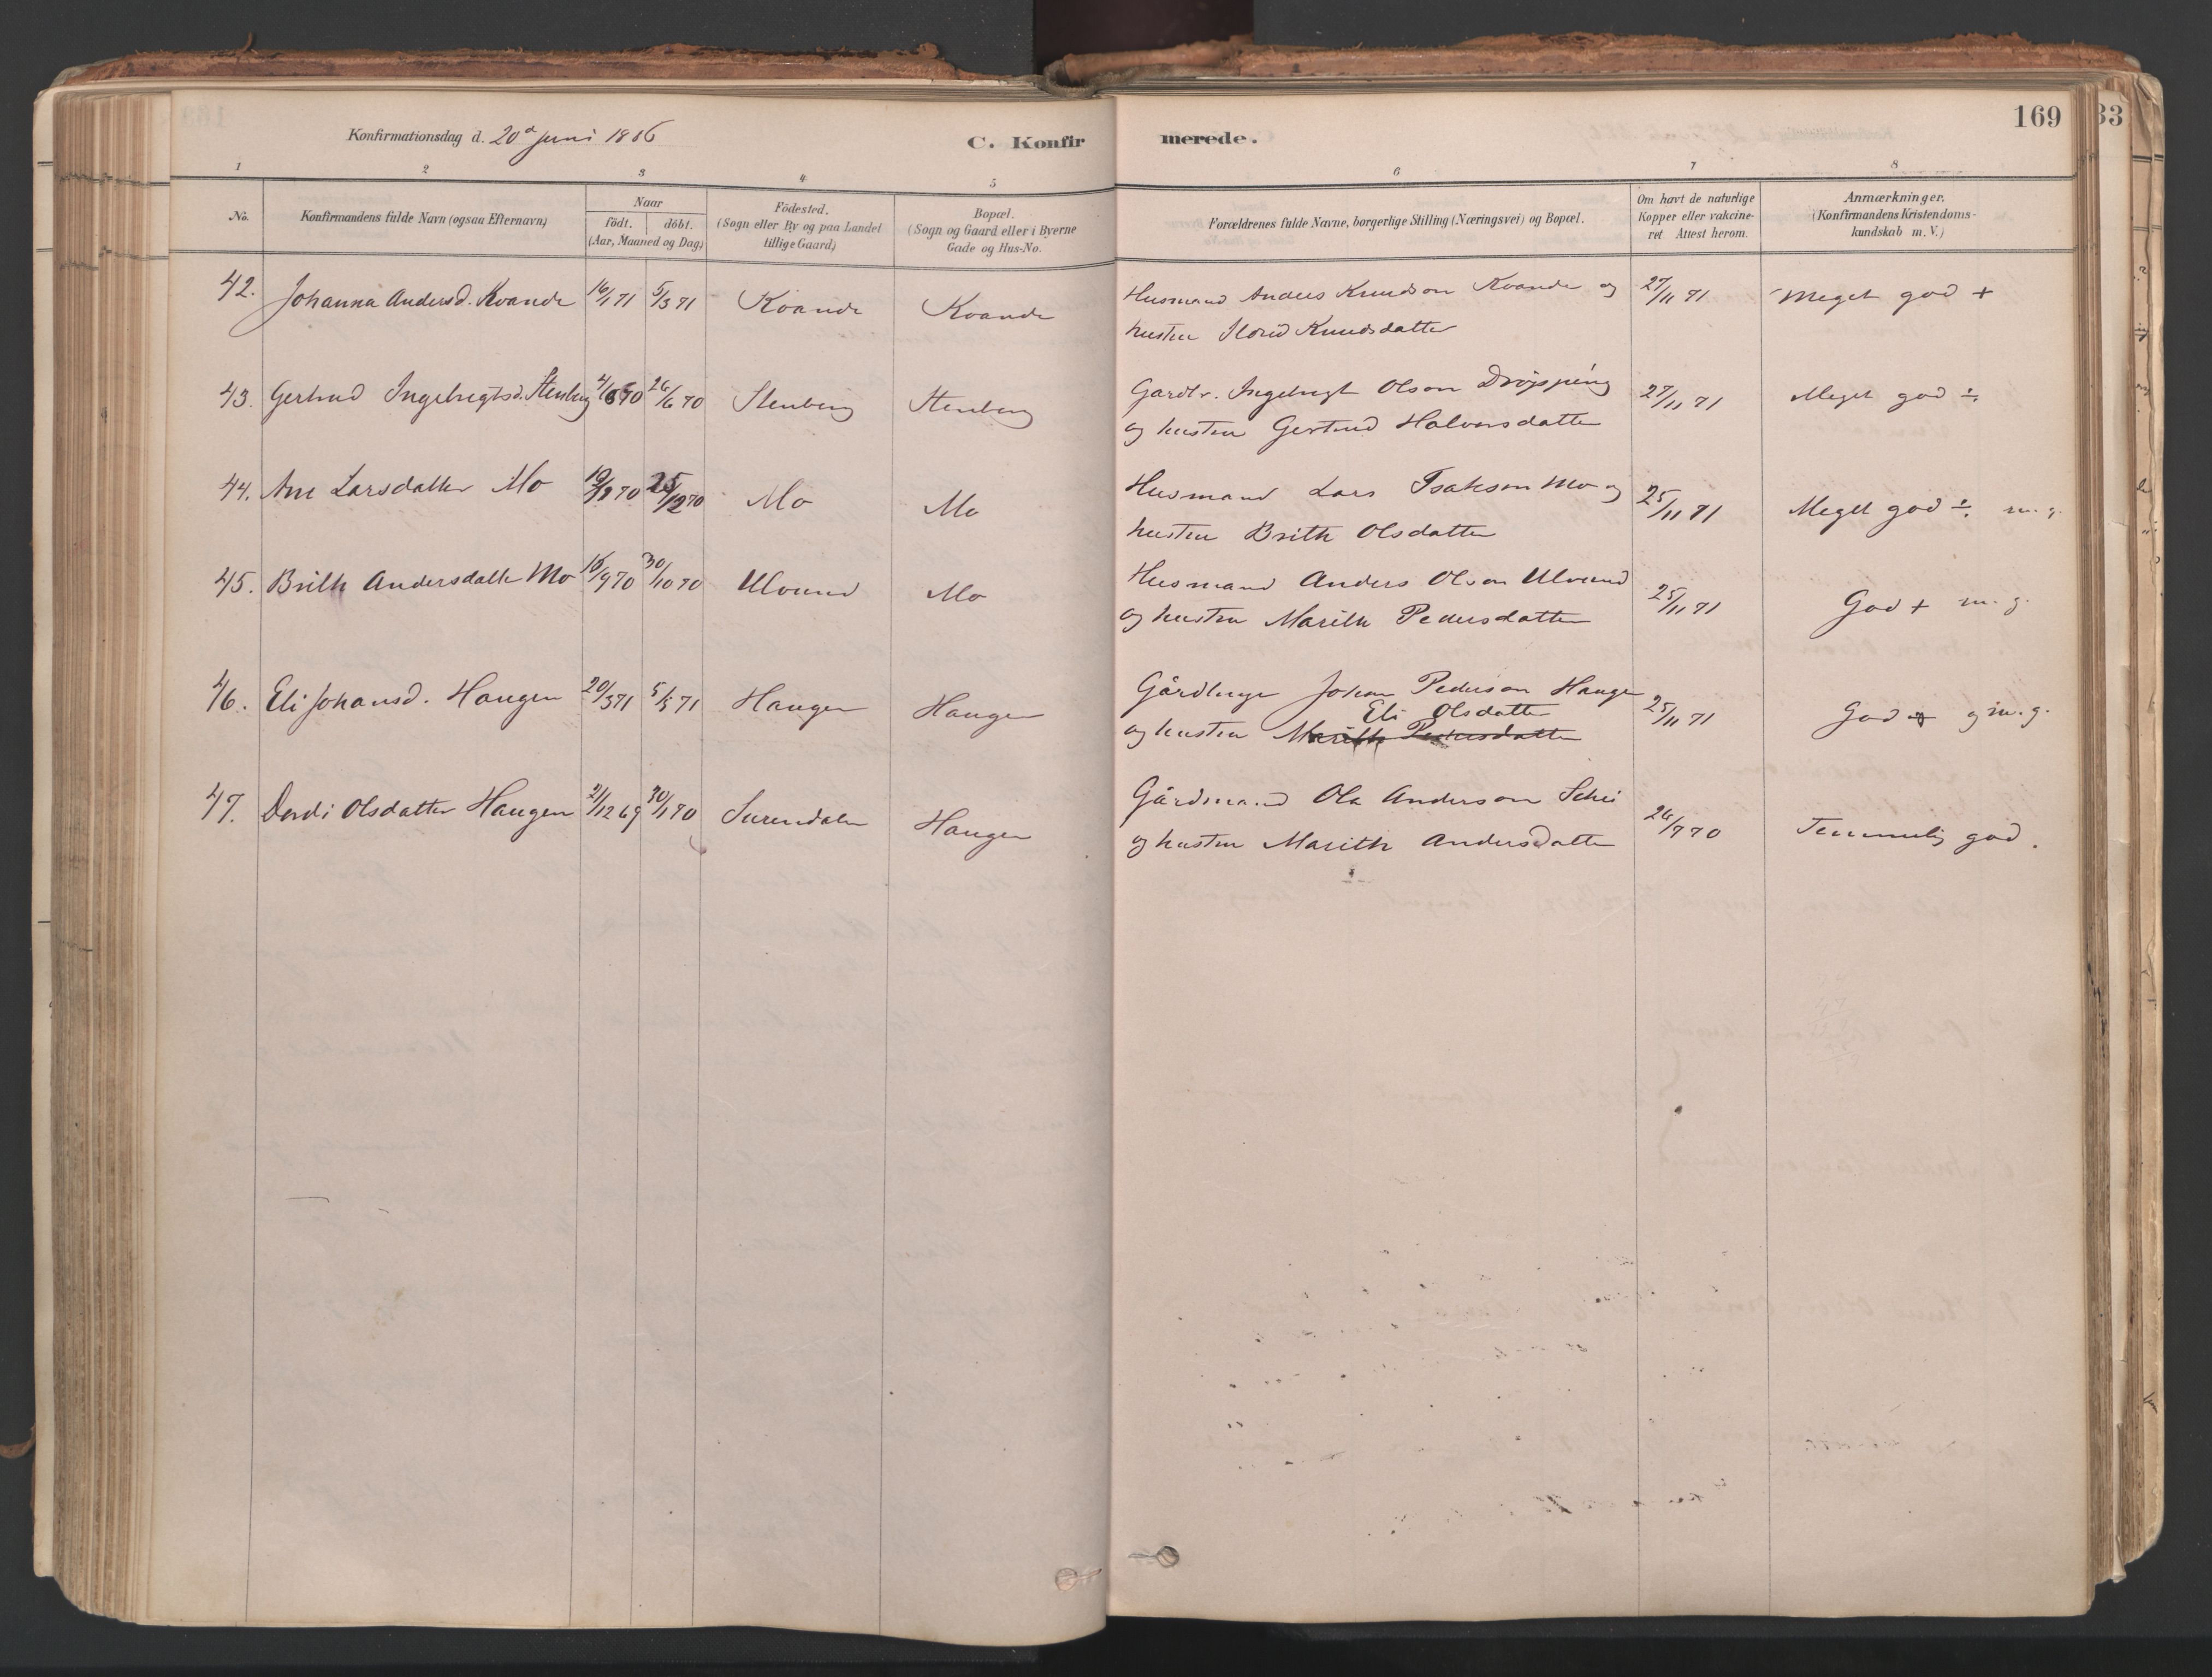 169
33
Konfirmationsdag d. 20de Juni 1886
C. Konfirmerede.
1 2 3 4 5 6 7 8
No.
Konfirmandens fulde Navn (ogsaa Efternavn)
Naar
födt. döbt.
(Aar, Maaned og Dag)
Födested.
(Sogn eller By og paa Landet
tillige Gaard)
Bopæl.
(Sogn og Gaard eller i Byerne
Gade og Hus-No.
Forældrenes fulde Navne, borgerlige Stilling (Næringsvei) og Bopæl.
Om havt de naturlige
Kopper eller vakcine-
ret. Attest herom.
Anmærkninger.
(Konfirmandens Kristendoms-
kundskab m. V.)
42. Johanna Andersd. Kvande 16/1 71 5/3 71 Kvande Kvande Husmand Anders Knudson Kvande og 27/11 71 Meget god +
hustru Knudsdatter
43. Gertrud Ingebregtsd. Stenberg 26/6 70 Stenberg Stenberg Gardbr. Ingebregt Olson Dröpping 27/11 71 Meget god ÷
og hustru Gertrud Halvorsdatter
44. Ane Larsdatter Mo 25/12 70 Mo Mo Husmand Lars Isakson Mo og 25/11 71 Meget god ÷ m. g.
hustru Brith Olsdatter
45. Brith Andersdatter Mo 16/9 70 30/10 70 Ulvund Mo Husmand Anders Olson Ulvund 25/11 71 God + m. g.
og hustru Marith Pedersdatter
46. Eli Johansd. Haugen 20/3 71 5/5 71 Haugen Haugen Gårdbruger Johan Pederson Haugen 25/11 71 God m. g.
Eli Olsdatter
og hustru Marith Pedersdatter
47. Dordi Olsdatter Haugen 21/12 69 30/1 70 Surendalen Haugen Gårdmand Ola Anderson Schei 26/7 70 Temmelig god.
og hustru Marith Andersdatter